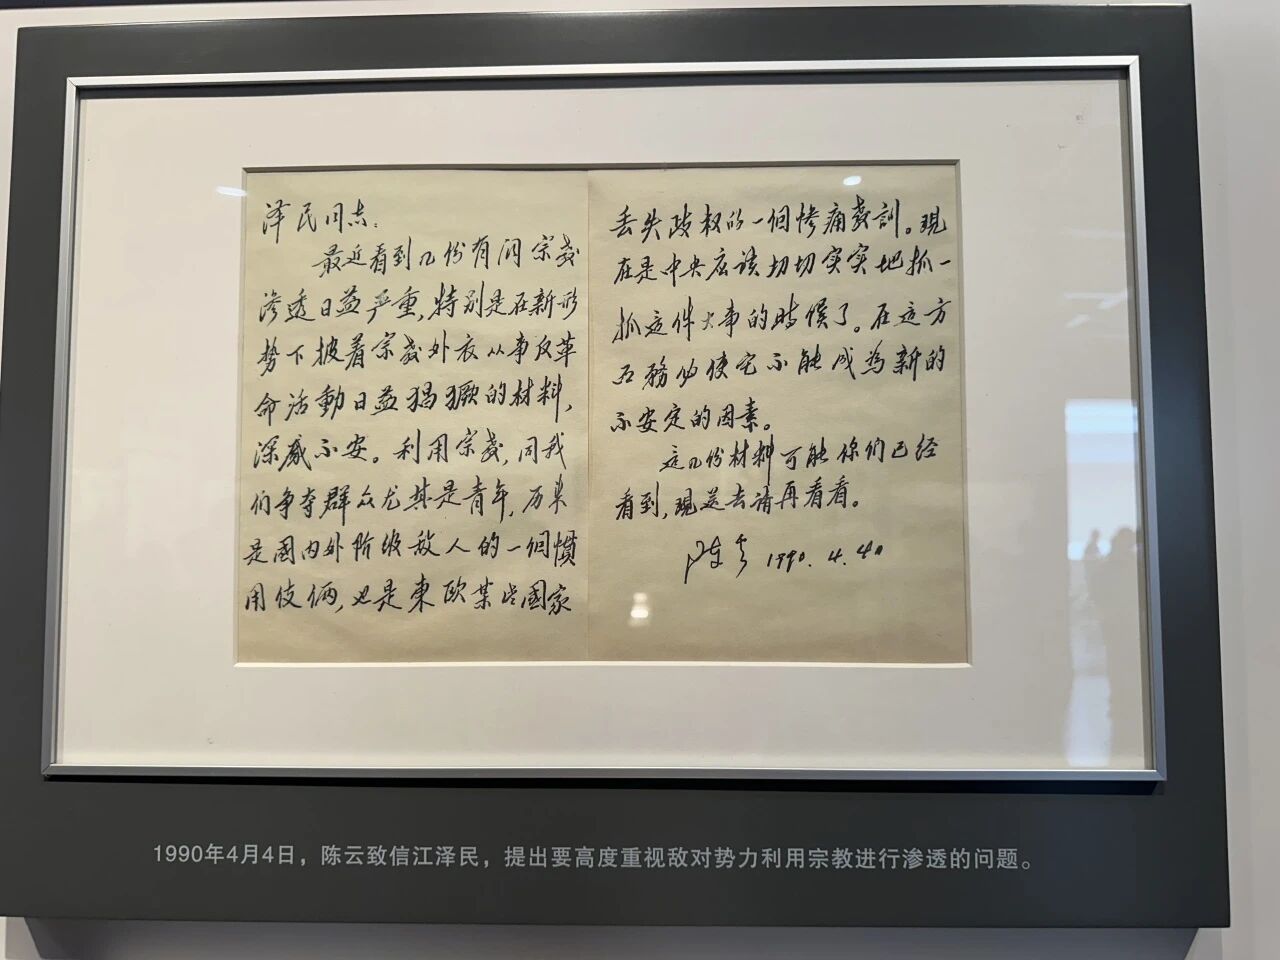 泽民同志：
最近看到几份有关宗教
渗透日益严重，特别是在新形
势下披着宗教外衣从事反革
命活動日益猖獗的材料，
深感不安。利用宗教，同我
们争夺群众尤其是青年，历来
是國内外阶级敌人的一個慣
用伎俩，也是東欧某些國家
丢失政权的一個惨痛教訓。現
在是中央应该切切实实地抓一
抓这件大事的時候了。在這方
面務必使它不能成為新的
不安定的因素。
這几份材料可能你们已经
看到，現送去请再看看。
陈云 1990.4.4日
1990年4月4日，陈云致信江泽民，提出要高度重视敌对势力利用宗教进行渗透的问题。